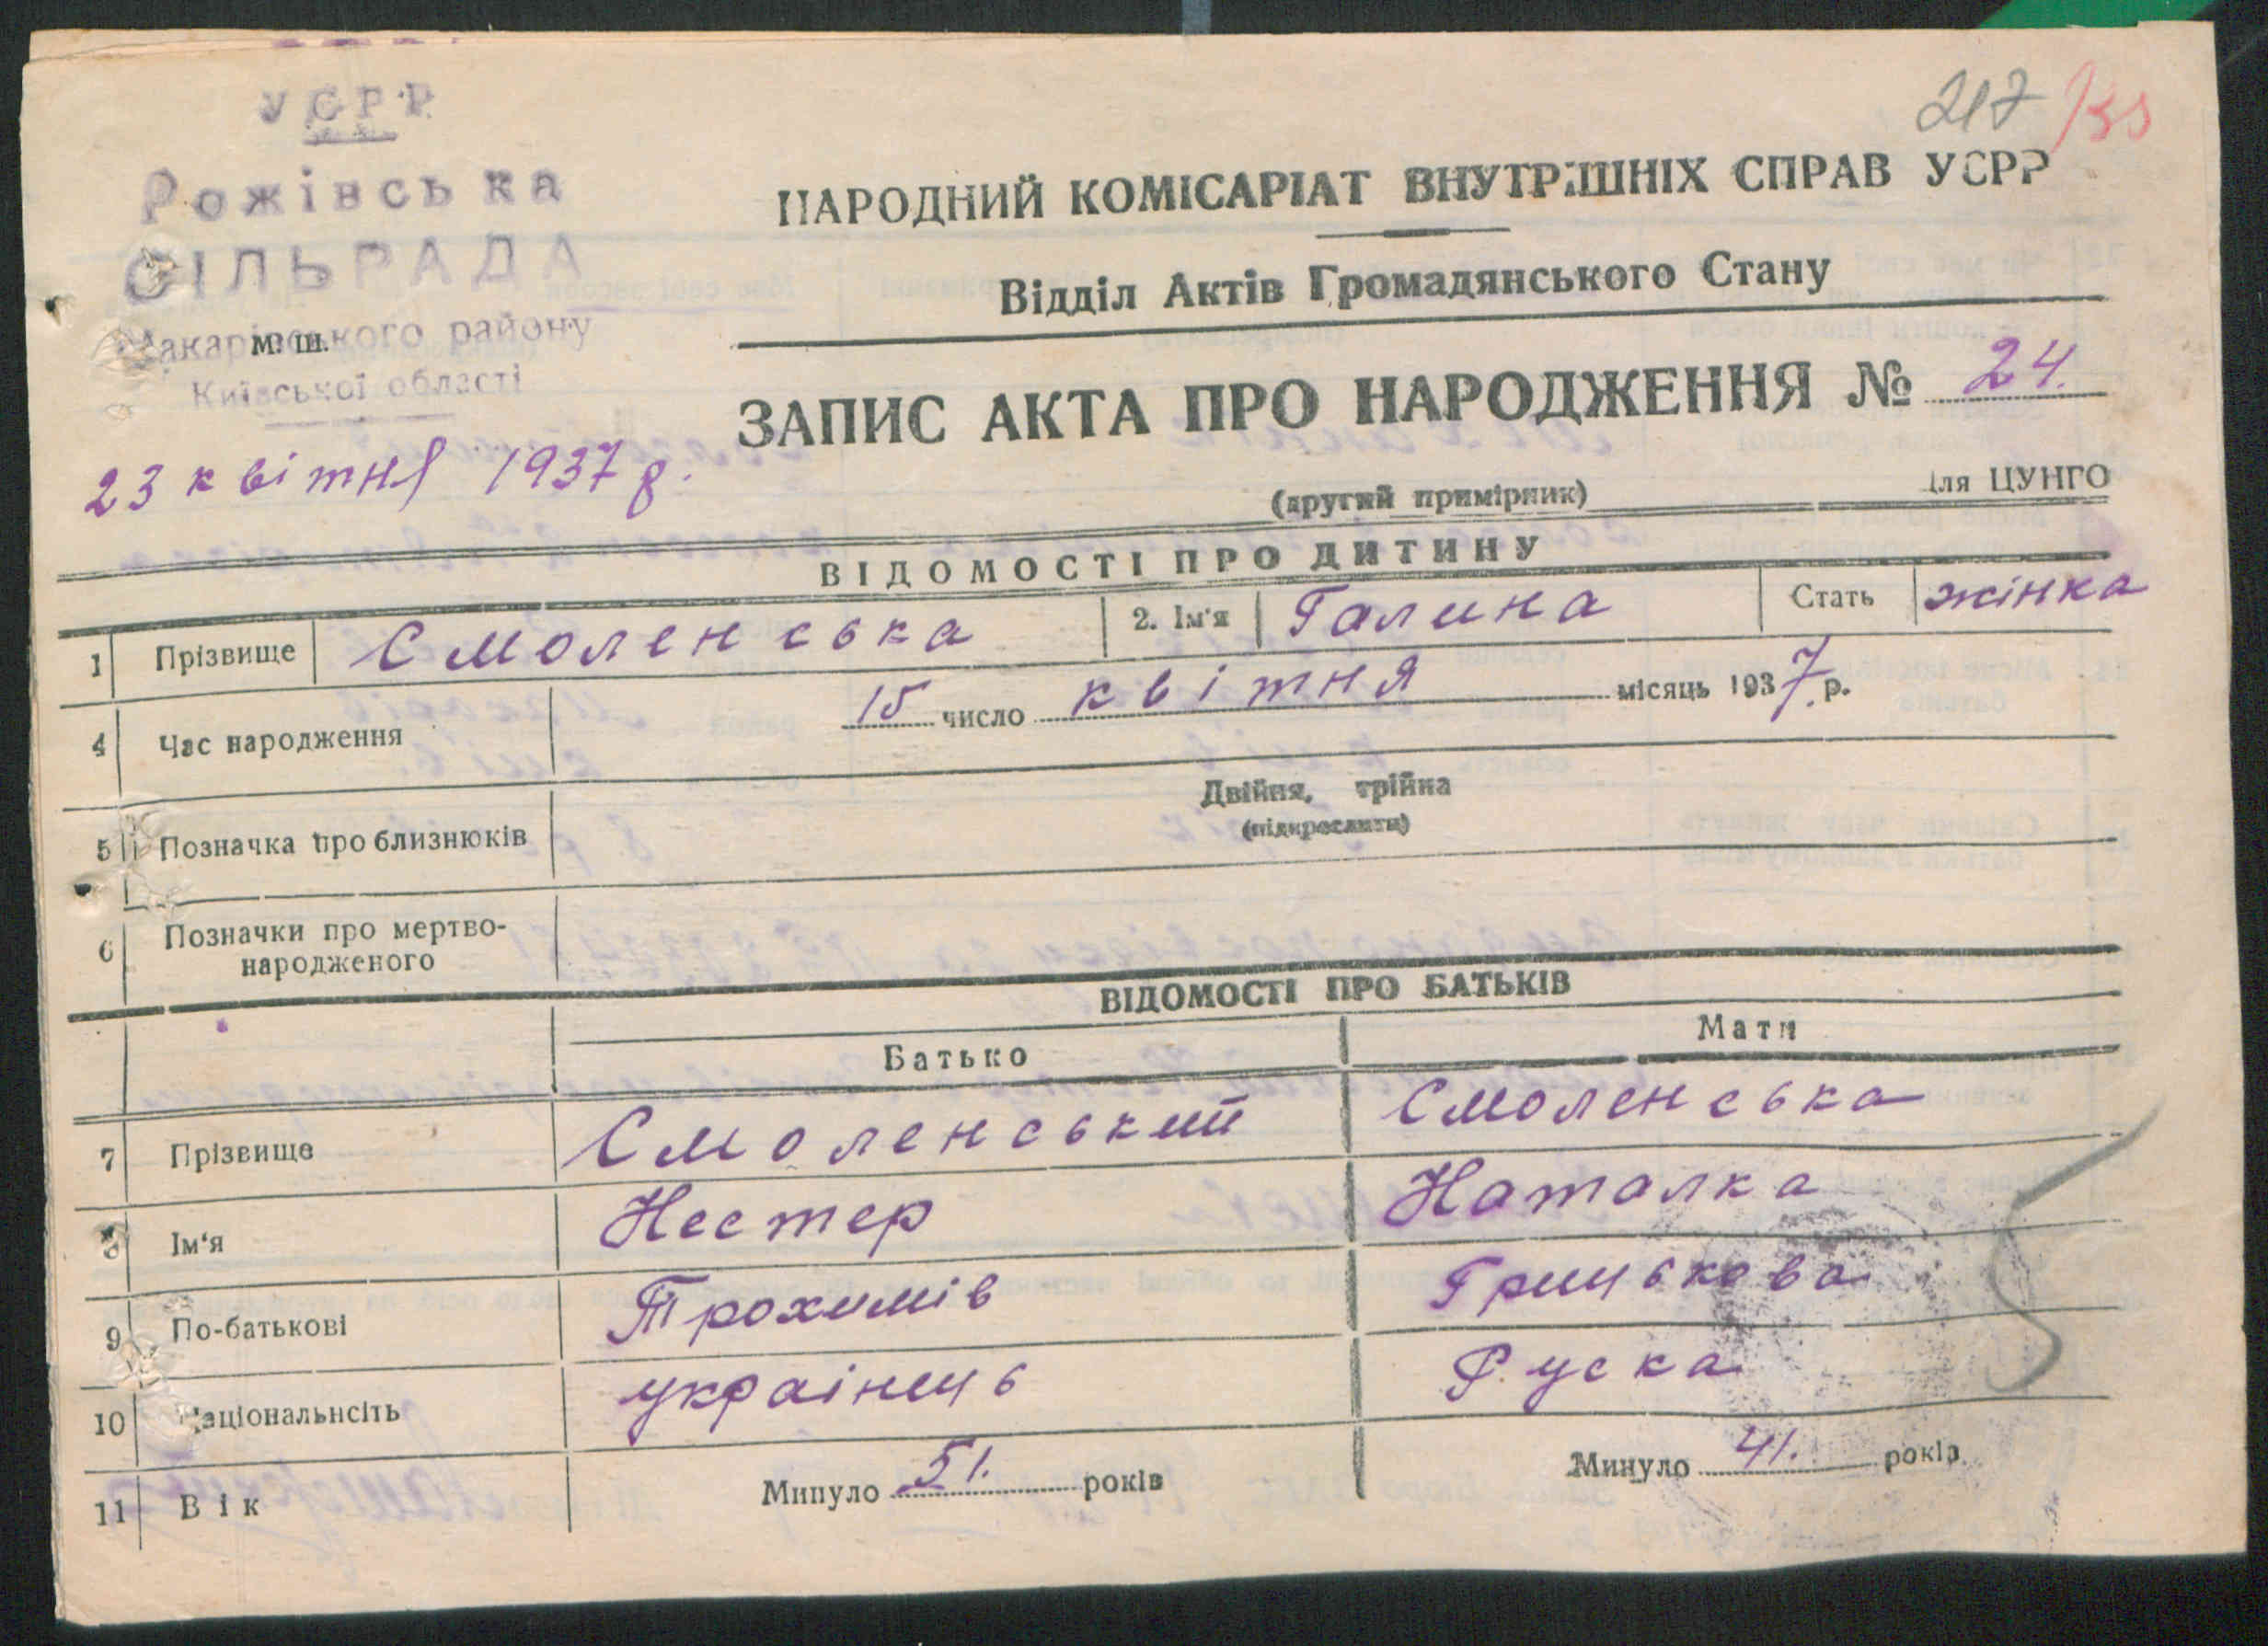 УСРР
Рожівська
СІЛЬРАДА
Макарівського району
м. ш.
Київської області
23 квітня 1937 р.
217
НАРОДНИЙ КОМІСАРІАТ ВНУТРІШНІХ СПРАВ УСРР
Відділ Актів Громадянського Стану
ЗАПИС АКТА ПРО НАРОДЖЕННЯ № 24.
(другий примірник) для ЦУНГО
ВІДОМОСТІ ПРО ДИТИНУ
1 Прізвище Смоленська 2. Ім'я Галина Стать жінка
4 Час народження 15 число квітня місяць 1937 р.
5 Позначка про близнюків Двійня, трійна
(підкреслити)
6 Позначки про мертво-
народженого
ВІДОМОСТІ ПРО БАТЬКІВ
Батько Мати
7 Прізвище Смоленський Смоленська
8 Ім'я Нестер Наталка
9 По-батькові Трохимів Грицькова
10 Національнсіть українець Руска
11 Вік Минуло 51. років Минуло 41. років